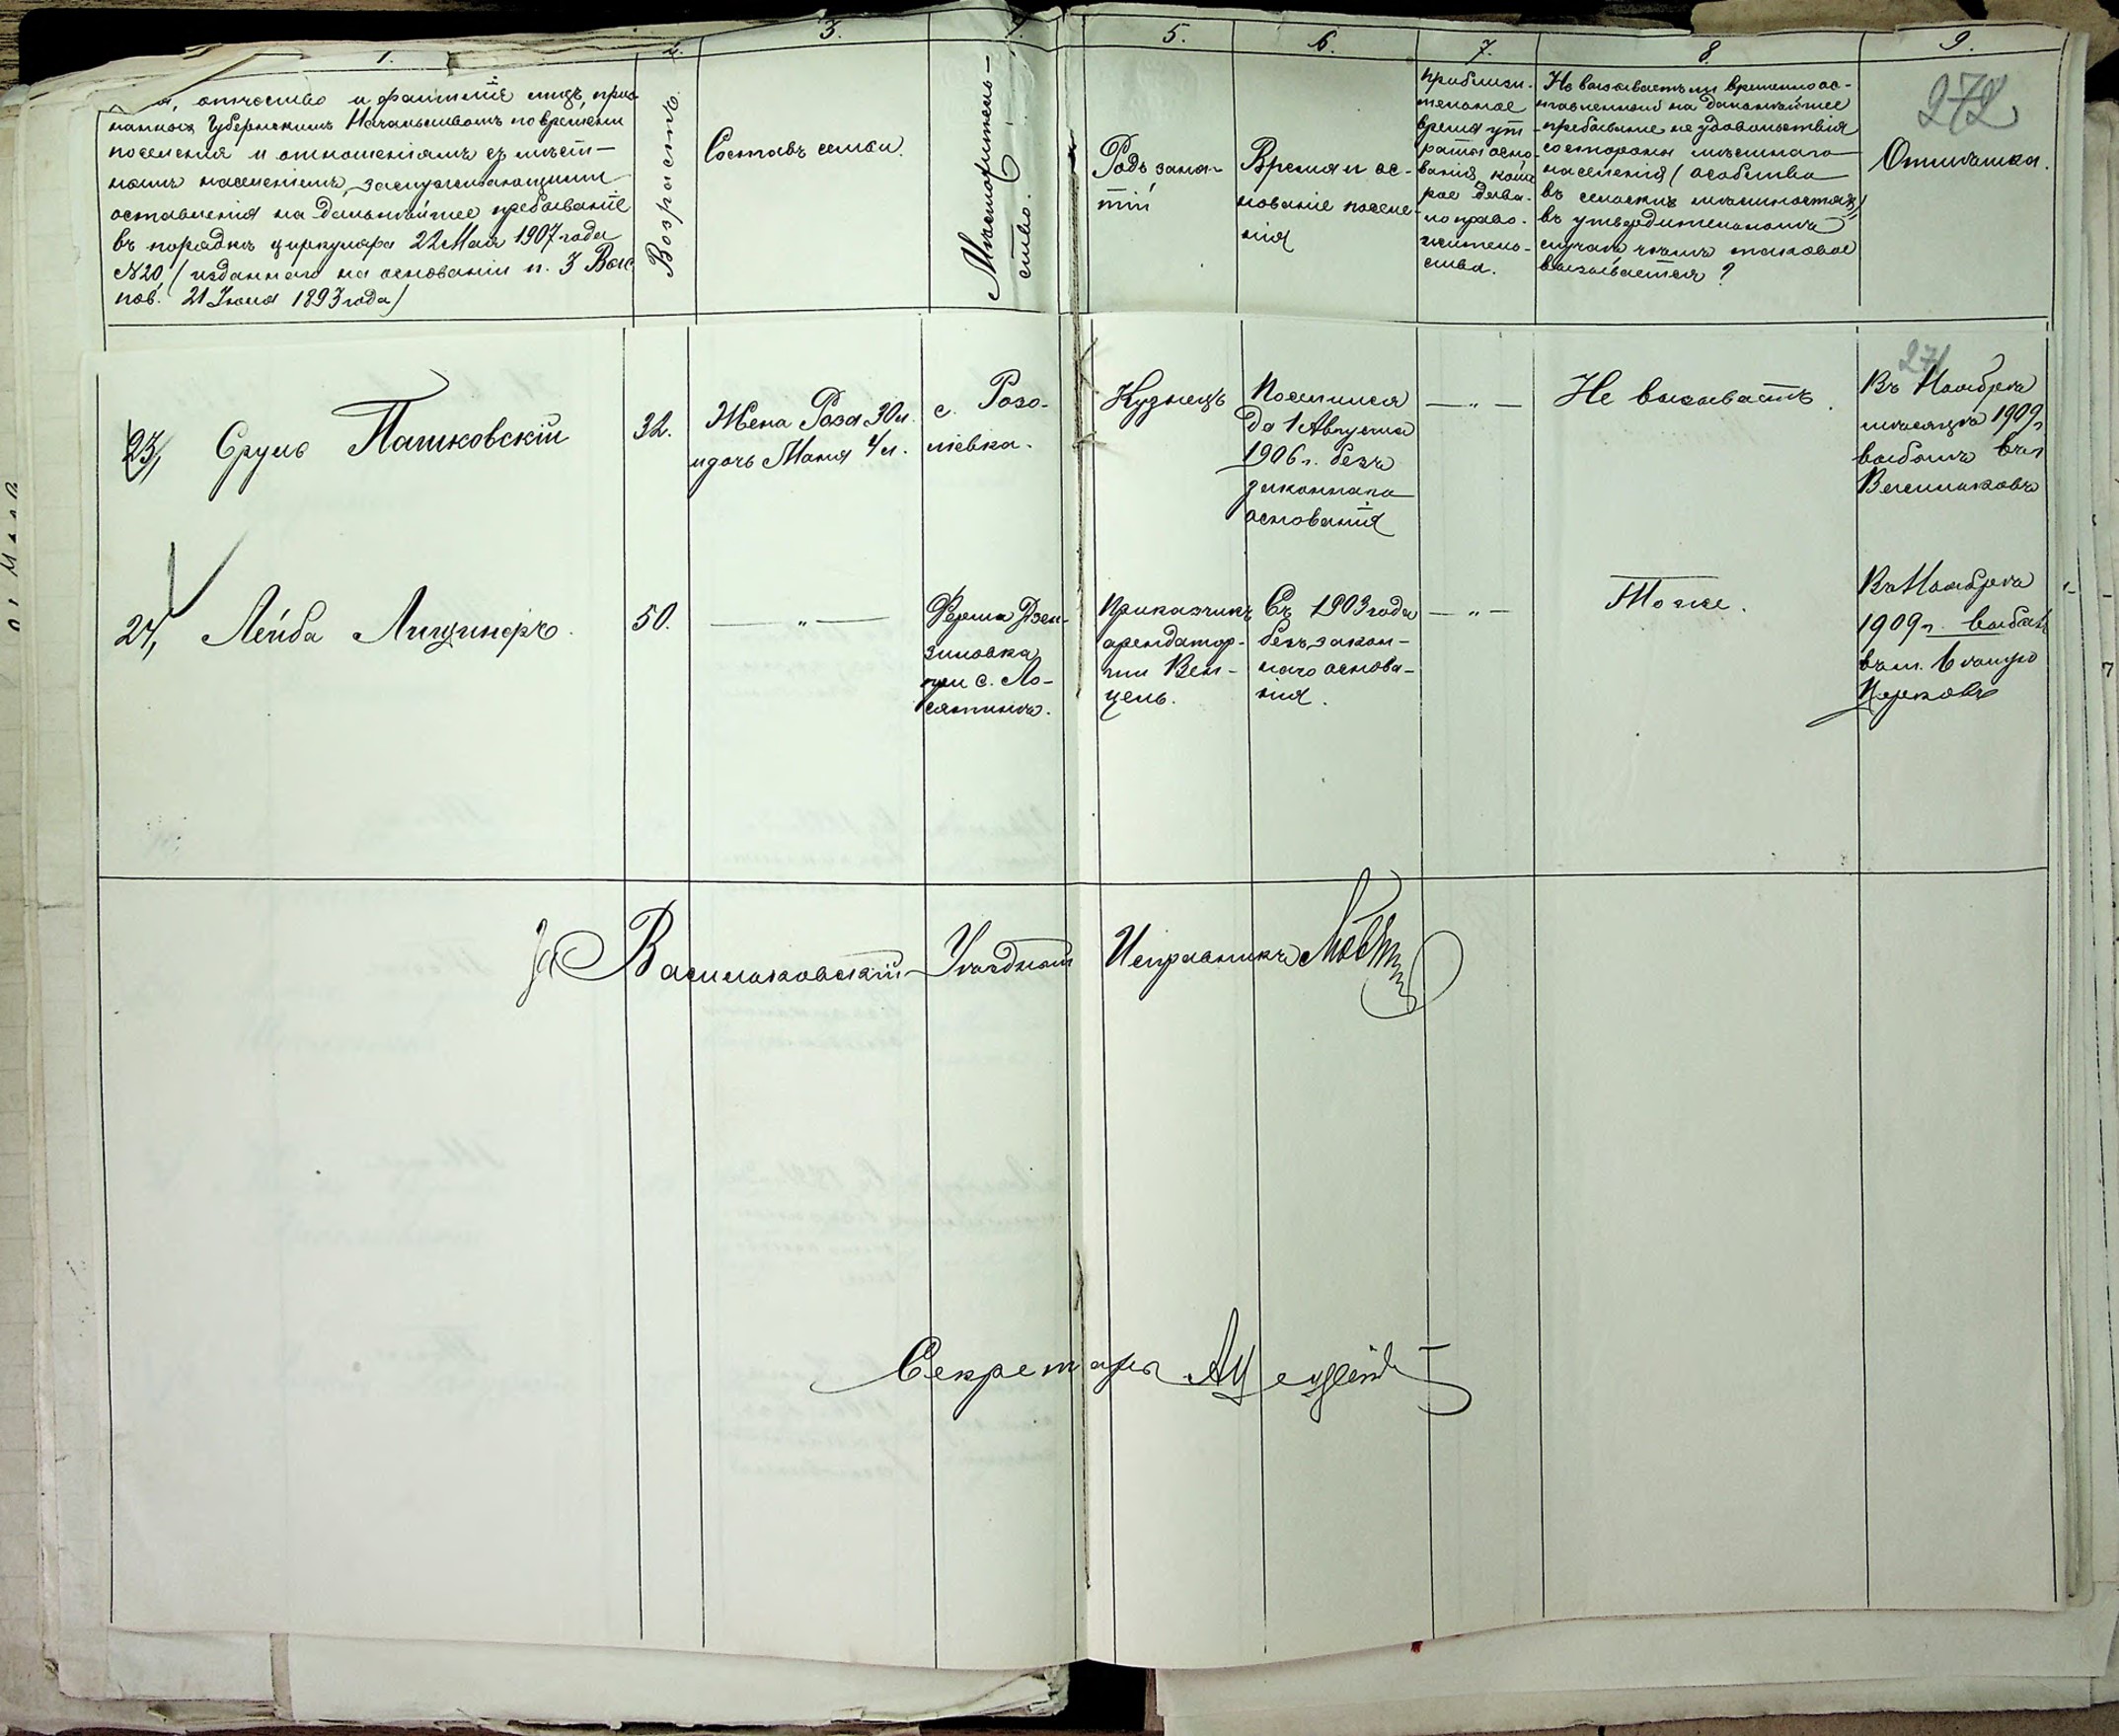 1.
2.
3.
4.
5.
6.
7.
8.
9.
272
отчество и фамилiе лицъ, приз-
нанныхъ Губернскимъ Начальствомъ по времени
поселенiя и отношенiямъ съ мѣст-
нымъ населенiемъ, заслуживающими
оставленiя на дальнѣйшее пребыванiе
въ порядкѣ циркуляра 22 Мая 1907 года
№ 20, (изданнаго на основанiи п. 3 Выс.
пов. 21 Iюня 1893 года)
Возрастъ.
Составъ семьи.
Мѣстожитель-
ство.
Родъ заня-
тiй
Время и ос-
нованiе поселе-
нiя
приблизи-
тельное
время ут-
раты осно-
ванiя, кото
рое дава-
ло право-
житель-
ства.
Не вызываетъ ли временно ос-
тавленный на дальнѣйшее
пребыванiе неудовольствiя
со стороны мѣстнаго
населенiя (особенно
въ сельскихъ мѣстностяхъ)
въ утвердительномъ
случаѣ чѣмъ таковое
вызывается?
Отмѣтка.
271
23, Сруль Пашковскiй
32.
Жена Роза 30 л.
и дочь Маня 4 л.
с. Розо-
лiевка.
Кузнецъ
Поселился
до 1 Августа
1906 г. безъ
законнаго
основанiя
— „ —
Не вызываетъ.
Въ Ноябрѣ
мѣсяцѣ 1909 г.
выбылъ въ г.
Васильковъ
24, Лейба Лищинеръ.
50.
— „ —
Ферма Дзен-
зиловка
при с. Ло-
сятинѣ.
Приказчикъ
арендатор-
ши Вен-
цель.
Съ 1903 года
безъ закон-
наго основа-
нiя.
— „ —
Тоже.
Въ Ноябрѣ
1909 г. выбылъ
въ м. Бѣлую
Церковь
За Васильковскiй Уѣздный Исправникъ
Секретарь